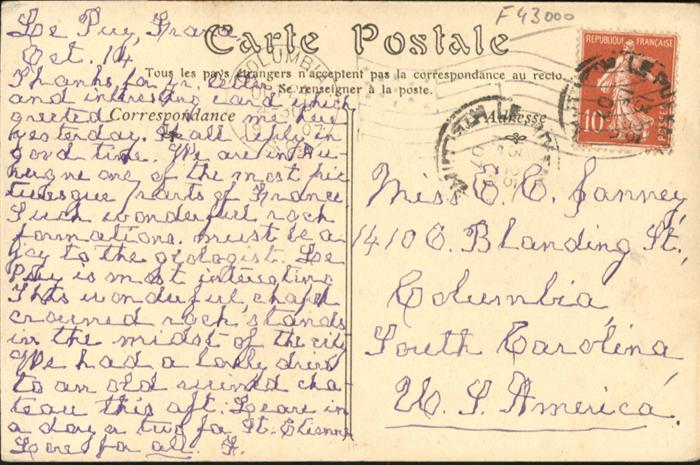 Le Puy, France
Oct. 14
Thanks for yr. letter
and interesting card which
greeted me here
yesterday. Shall reply in
good time. We are in Au-
vergne one of the most pic
turesque parts of France
Such wonderful rock
formations. must be a
joy to the geologist. Le
Puy is most interesting
This wonderful, chapel
crowned rock, stands
in the midst of the city
We had a lovely drive
to an old ruined cha-
teau this aft. Leave in
a day or two for St-Etienne
Love for all. F.
F43000
Carte Postale
Tous les pays étrangers n'acceptent pas la correspondance au recto.
Se renseigner à la poste.
Correspondance
Adresse
COLUMBIA
REPUBLIQUE FRANÇAISE
10
LE PUY
Miss E. C. Janney,
1410 E. Blanding St.,
Columbia,
South Carolina
U. S. America.